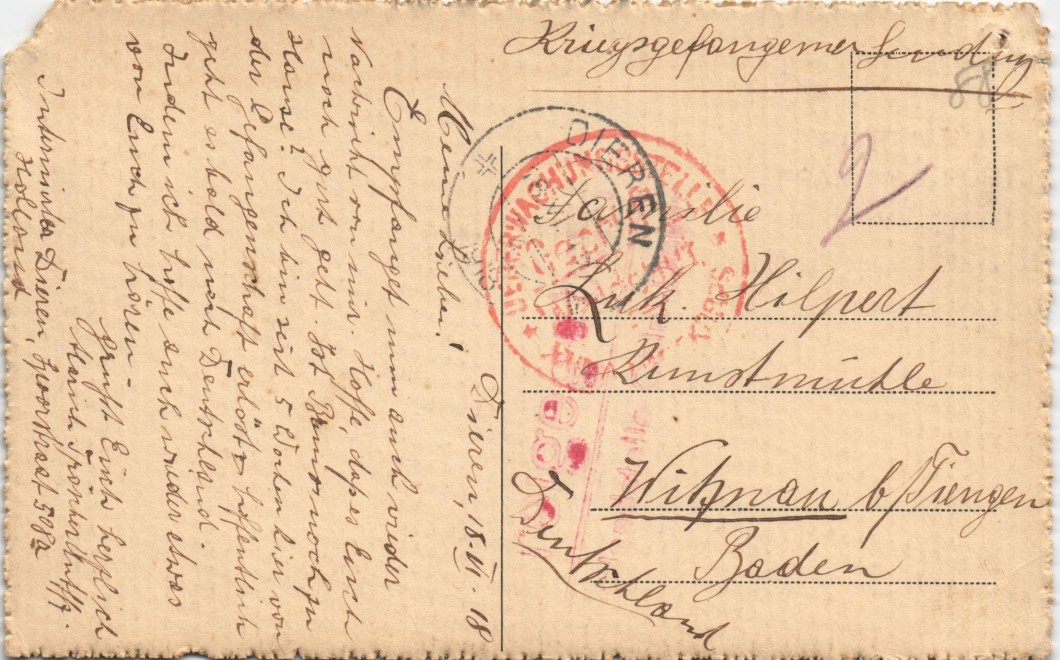 Kriegsgefangener Sendung
88
2
DIEREN
UEBERWACHUNGSSTELLE
Familie
Luk. Hilpert
Kunstmühle
Witznau b/Tiengen
Baden
Deutschland
Dieren, 18. VI. 18
Meine Lieben!
Empfanget nun auch wieder
Nachricht von mir. Hoffe, dass es Euch
noch gut geht. Ist Baum noch zu
Hause? Ich bin seit 5 Wochen hier von
der Gefangenschaft erlöst. Hoffentlich
geht es bald nach Deutschland.
Indem ich hoffe auch wieder etwas
von Euch zu hören –
grüßt Euch herzlich
Internierter Dieren, 592
Holland